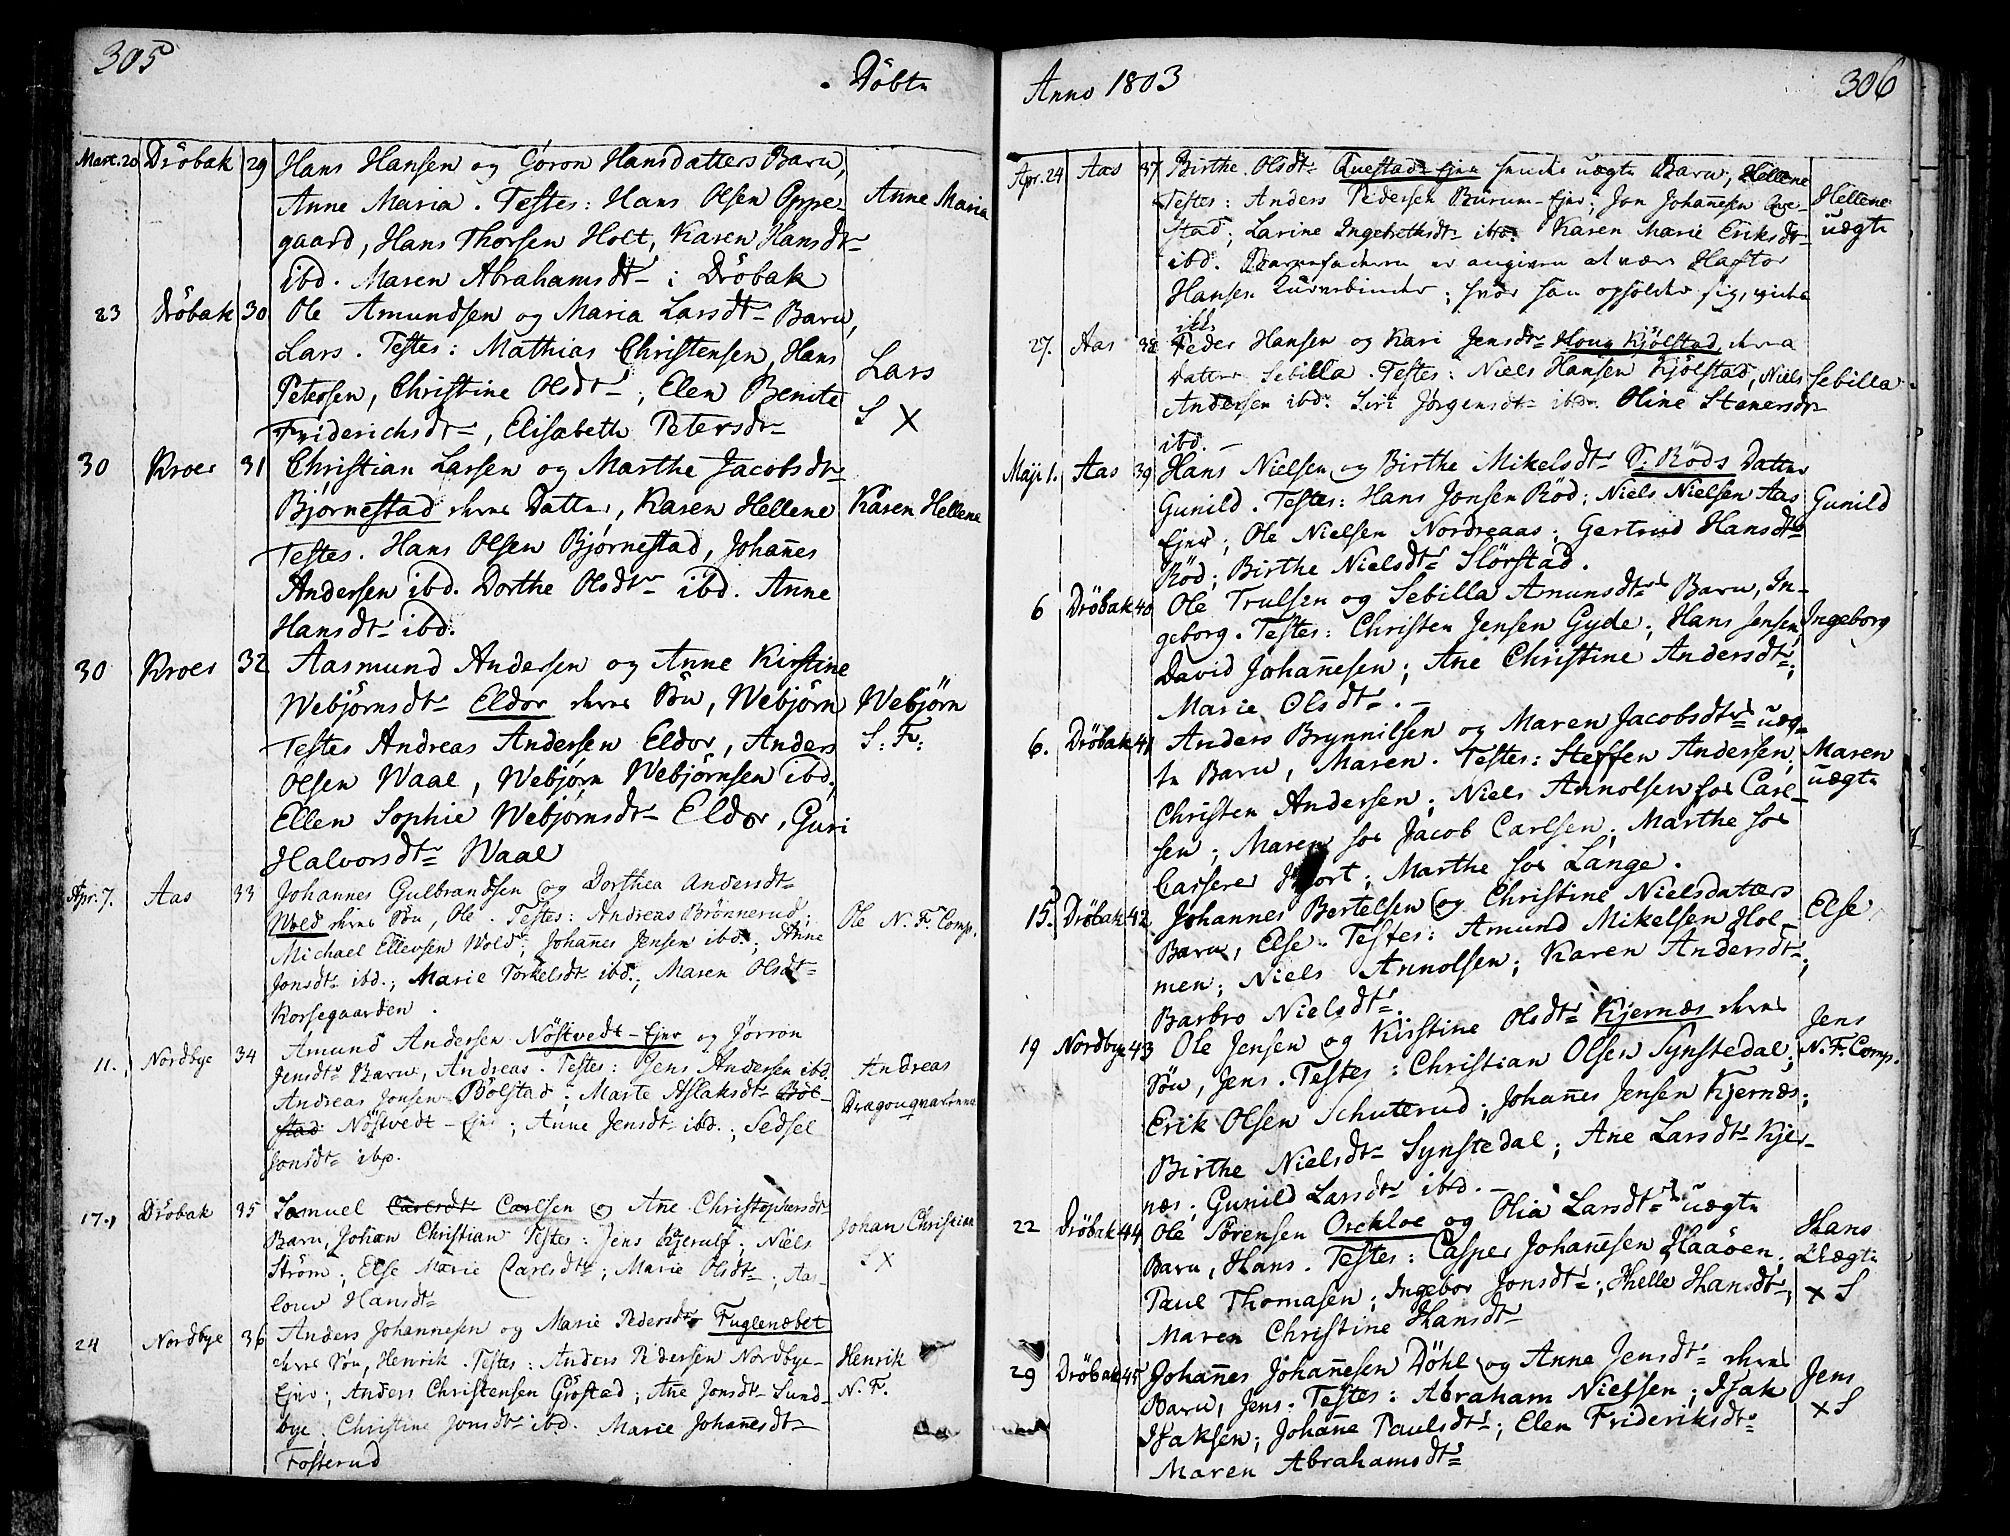 305
Döbte
Mart. 20 Dröbak 29 Hans Hansen og Gøron Hansdatters Barn,
Anne Maria. Testes: Hans Olsen Oppe- Anne Maria
gaard, Hans Thorsen Holt, Karen Hansdtr
ibd. Maren Abrahamsdtr i Dröbak
23 Dröbak 30 Ole Amundsen og Maria Larsdtr Barn,
Lars. Testes: Mathias Christensen, Hans Lars
Petersen, Christine Olsdtr; Elen Benite S X
Friderichsdtr, Elisabeth Petersdtr
30 Kroer 31 Christian Larsen og Marthe Jacobsdtr
Bjørnestad deres Datter, Karen Hellene Karen Hellene
Testes. Hans Olsen Bjørnestad, Johanes
Andersen ibd. Dorthe Olsdtr ibd. Anne
Hansdtr ibd.
30 Kroer 32 Aasmund Andersen og Anne Kirstine
Webjörnsdtr Eldor deres Sön, Webjörn Webjörn
Testes Andreas Andersen Eldor, Anders S: F:
Olsen Waal, Webjørn Webjörnsen ibd,
Ellen Sophie Webjørnsdtr Eldor, Guri
Halvorsdtr Waal
Apr. 7. Aas 33 Johannes Gulbrandsen og Dorthea Andersdtr
Wold deres Sön, Ole. Testes: Andreas Brönnerud; Ole N. F. Comp.
Michael Ellevsen Wold; Johanes Jensen ibd.; Anne
Jonsdtr ibd.; Marie Torkelsdtr ibd.; Maren Olsdtr
Korsegaarden.
11. Nordbye 34 Amund Andersen Nöstvedt-Ejer og Jörron
Jensdtr Barn, Andreas. Testes: Jens Andersen ibd. Andreas
Andreas Jonsen Bölstad; Marte Aslaksdtr Böl- Dragonqvarteene
stad Nöstvedt-Ejer; Anne Jensdtr ibd.; Sedsel
Jonsdtr ibd.
17. Dröbak 35 Samuel Carlsdtr Carlsen og Ane Christophersdtr
Barn, Johan Christian Testes: Jens Kjerulf; Niels Johan Christian
Ström; Else Marie Carlsdtr; Marie Olsdtr; Aas- S X
louv Hansdtr
24 Nordbye 36 Anders Johannesen og Marie Pedersdtr Fuglenæbet
deres Sön, Henrik. Testes: Anders Pedersen Nordbye- Henrik
Ejer; Anders Christensen Gröstad; Ane Jonsdtr Sund- N. F.
bye; Christine Jonsdtr ibd. Marie Johanesdtr
Fosterud
Anno 1803
306
Apr. 24 Aas 37 Birthe Olsdtr Questad-Ejer hendes uægte Barn, Hellene
Testes: Anders Pedersen Burum-Ejer; Jon Johanesen Que- Hellene
stad; Larine Ingebrethsdtr ibd. Karen Marie Eriksdtr uægte
ibd. Barnefaderen er angiven at være Haftor
Hansen Kurvebinder; hvor han opholder sig, vides
ikke
27. Aas 38 Peder Hansen og Kari Jensdtr Houg Kjölstad deres
Datter Sebilla. Testes: Niels Hansen Kjölstad, Niels Sebilla
Andersen ibd. Siri Jørgensdtr ibd. Oline Stenersdtr
ibd.
Maji 1. Aas 39 Hans Nielsen og Birthe Mikelsdtr S. Röds Datter
Gunild. Testes: Hans Jonsen Röd; Niels Nielsen Aas Gunild
Ejer; Ole Nielsen Nordreaas; Gertrud Hansdtr
Röd; Birthe Nielsdtr Slörstad.
6 Dröbak 40 Ole Trulsen og Sebilla Amunsdtrs Barn, In-
geborg. Testes: Christen Jensen Gyde; Hans Jensen; Ingeborg
David Johanesen; Ane Christine Andersdtr;
Marie Olsdtr.
6. Dröbak 41 Anders Brynnilsen og Maren Jacobsdtrs uæg-
te Barn, Maren. Testes: Steffen Andersen; Maren
Christen Andersen; Niels Annolsen hos Carl- uægte
sen; Maren hos Jacob Carlsen; Marthe hos
Casserer Hjort; Marthe hos Lange.
15. Dröbak 42 Johannes Bertelsen og Christine Nielsdatters
Barn, Else. Testes: Amund Mikelsen Hol- Else
men; Niels Annolsen; Karen Andersdtr;
Barbro Nielsdtr.
19 Nordbye 43 Ole Jensen og Kirstine Olsdtr Kjernæs deres
Sön, Jens. Testes: Christian Olsen Synstedal; Jens
Erik Olsen Schuterud; Johanes Jensen Kjernæs; N. F. Comp.
Birthe Nielsdtr Synstedal; Ane Larsdtr Kjer-
næs; Gunild Larsdtr ibd.
22 Dröbak 44 Ole Sörensen Orekloe og Olia Larsdtrs uægte
Barn, Hans. Testes: Casper Johanesen Haaöen; Hans
Paul Thomasen; Ingebor Jonsdtr; Helle Hansdtr; Uægte
Maren Christine Hansdtr X S
29 Dröbak 45 Johanes Johanesen Döhl og Anne Jensdtr deres
Barn, Jens. Testes: Abraham Nielsen; Isak Jens
Isaksen; Johane Paulsdtr; Elen Frideriksdtr X S
Maren Abrahamsdtr